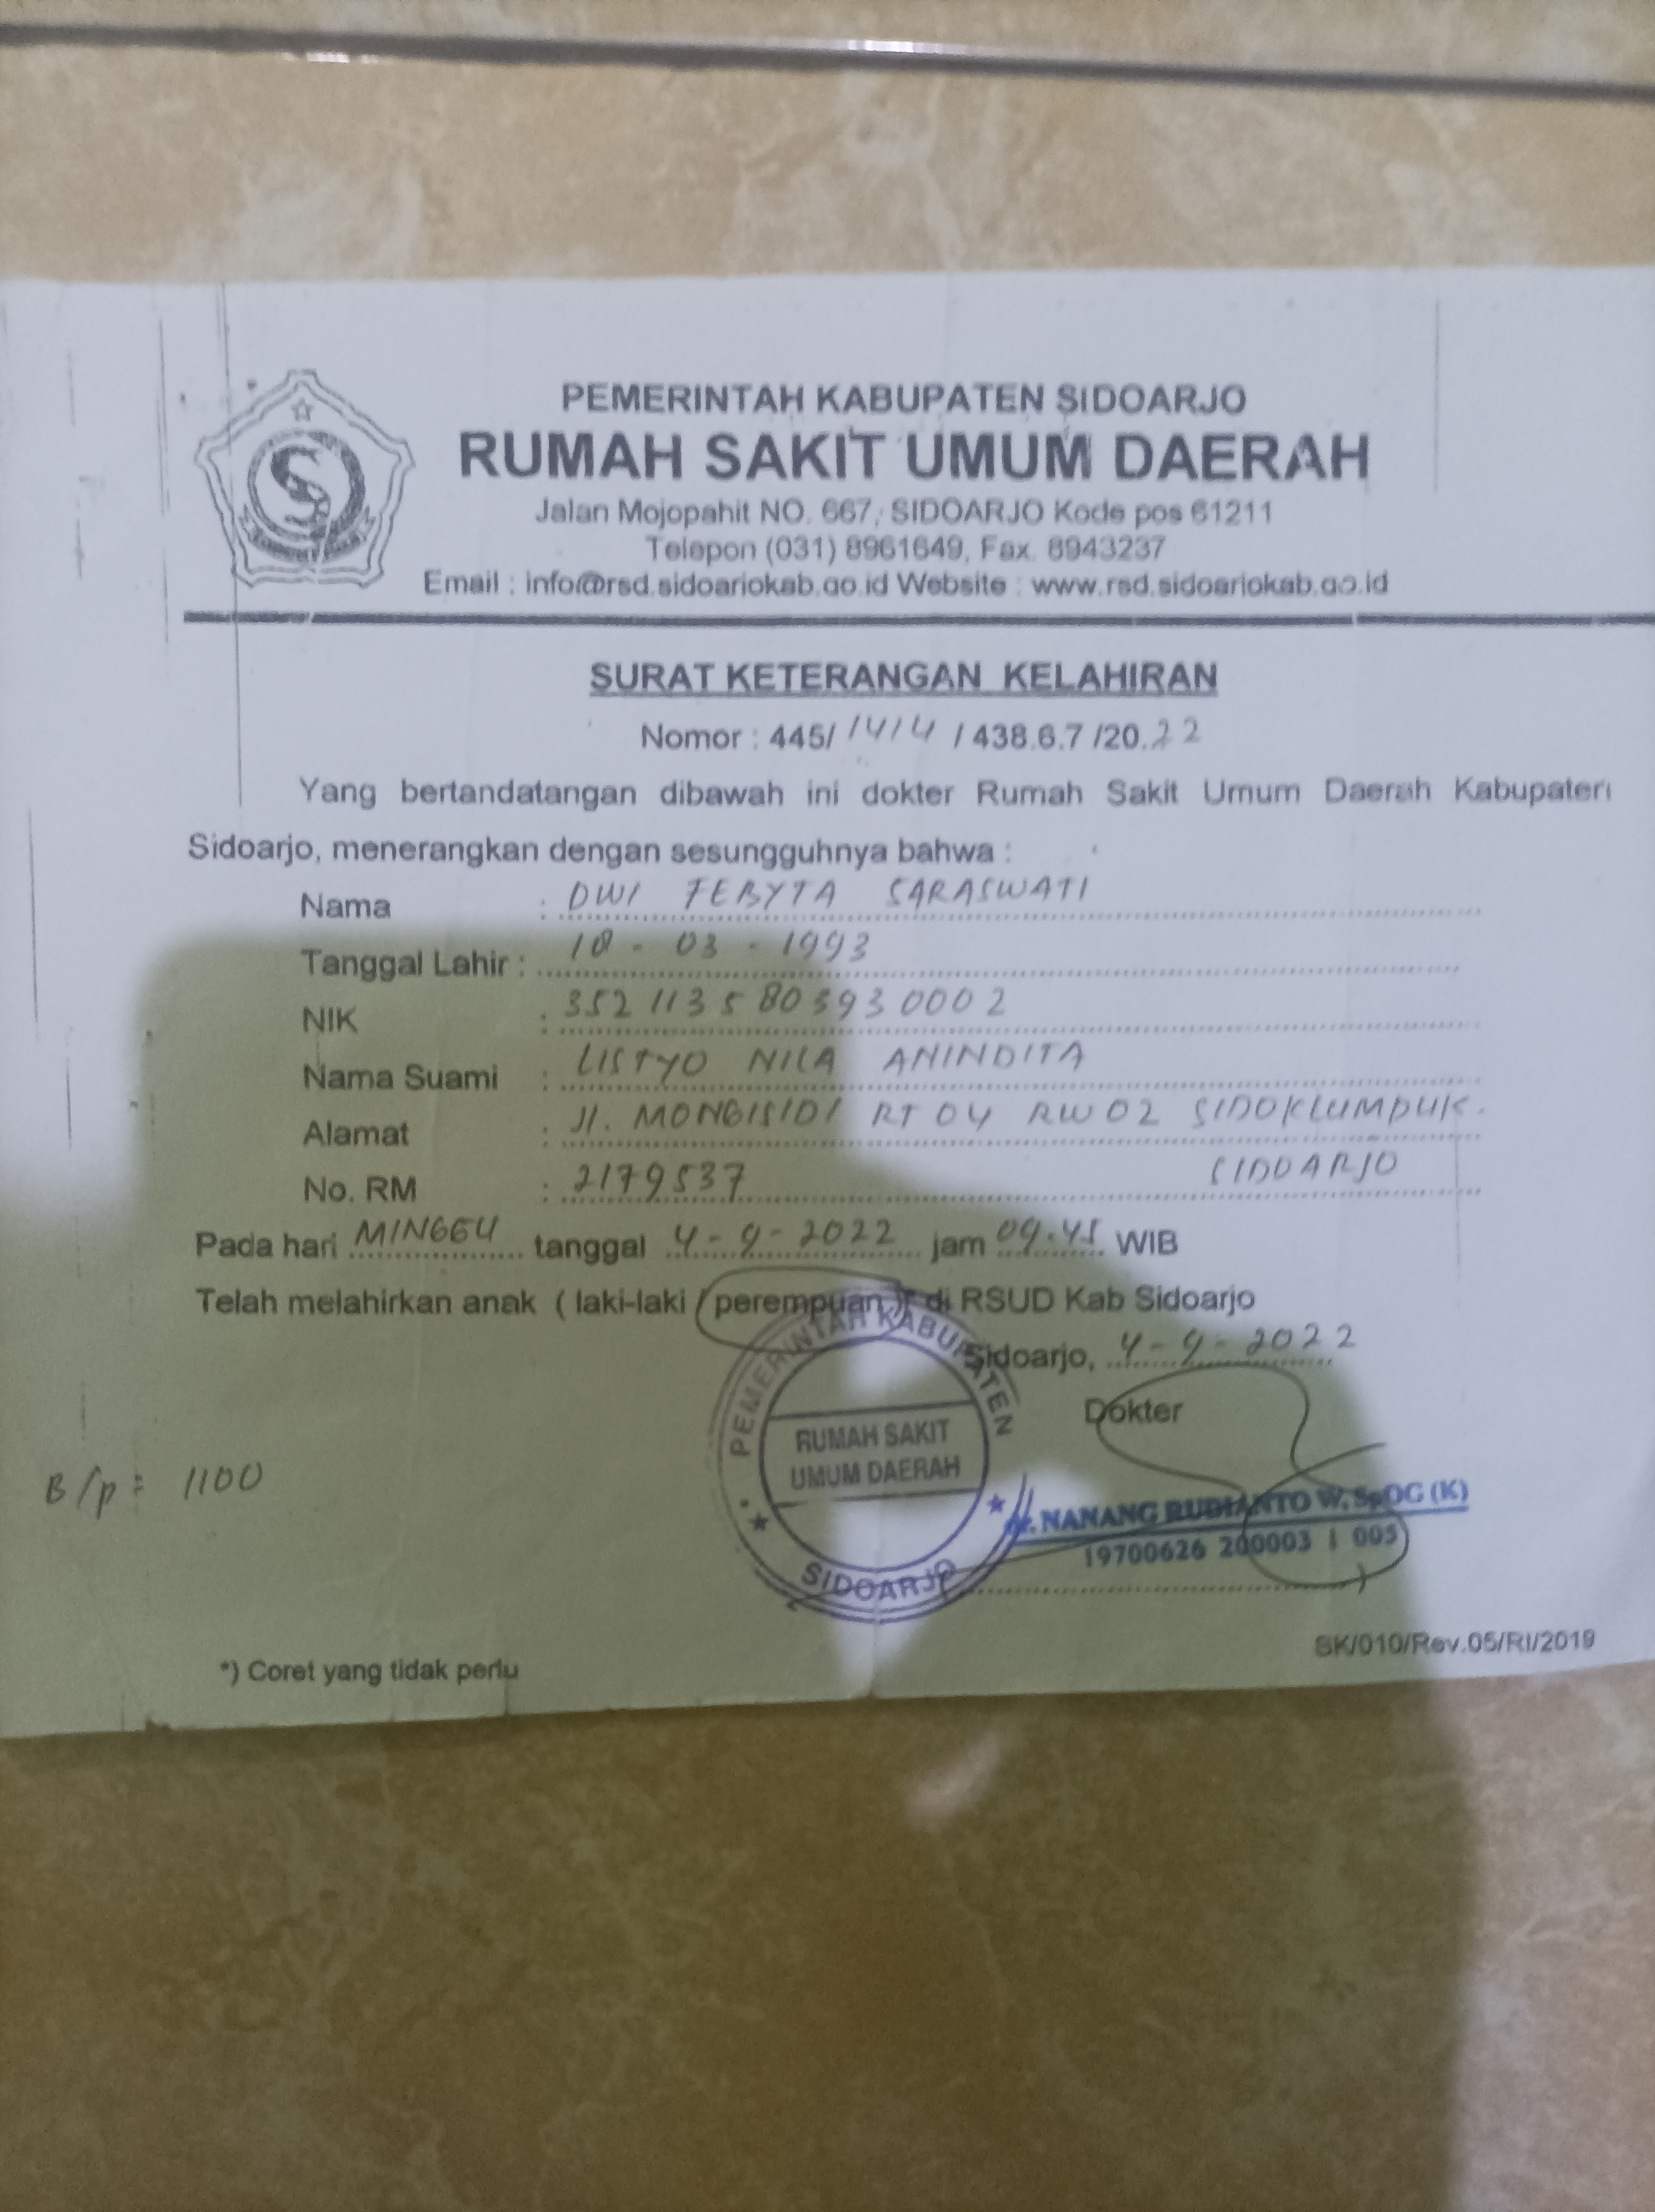 PEMERINTAH KABUPATEN SIDOARJO
RUMAH SAKIT UMUM DAERAH
Jalan Mojopahit NO. 667, SIDOARJO Kode pos 61211
Telepon (031) 8961649, Fax. 8943237
Email : info@rsd.sidoarjokab.go.id Website : www.rsd.sidoarjokab.go.id
SURAT KETERANGAN KELAHIRAN
Nomor : 445/ 1414 / 438.6.7 /20.22
Yang bertandatangan dibawah ini dokter Rumah Sakit Umum Daerah Kabupaten
Sidoarjo, menerangkan dengan sesungguhnya bahwa :
Nama : DWI FEBYTA SARASWATI
Tanggal Lahir : 18 - 03 - 1993
NIK : 3521135803930002
Nama Suami : LISTYO NILA ANINDITA
Alamat : Jl. MONGISIDI RT 04 RW 02 SIDOKLUMPUK.
SIDOARJO
No. RM : 2179537
Pada hari MINGGU tanggal 4-9-2022 jam 09.45 WIB
Telah melahirkan anak ( laki-laki / perempuan )* di RSUD Kab Sidoarjo
Sidoarjo, 4-9-2022
Dokter
PEMERINTAH KABUPATEN
RUMAH SAKIT
UMUM DAERAH
SIDOARJO
B/p = 1100
dr. NANANG RUDIANTO W, SpOG (K)
19700626 200003 1 005
SK/010/Rev.05/RI/2019
*) Coret yang tidak perlu